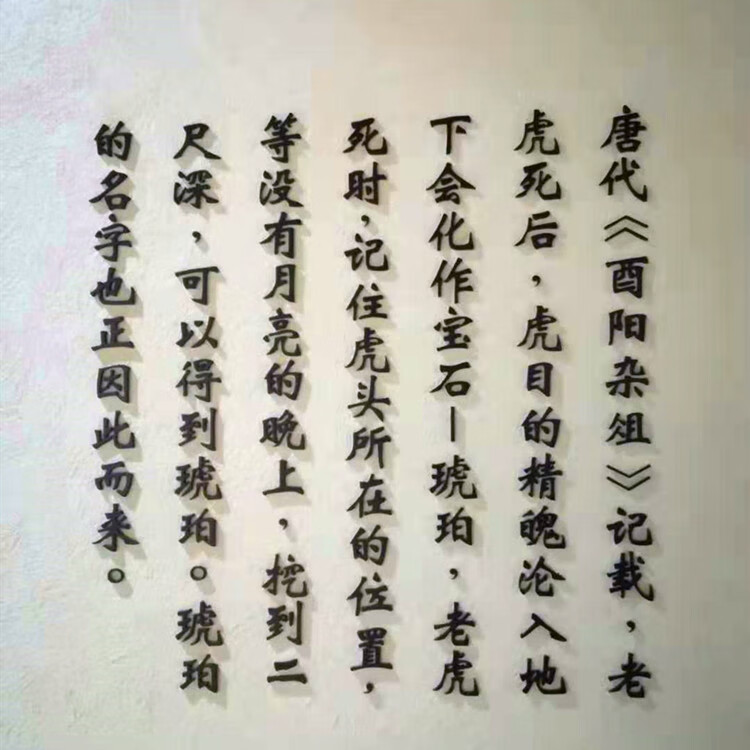 唐代《酉阳杂俎》记载，老
虎死后，虎目的精魄沦入地
下会化作宝石—琥珀，老虎
死时，记住虎头所在的位置，
等没有月亮的晚上，挖到二
尺深，可以得到琥珀。琥珀
的名字也正因此而来。